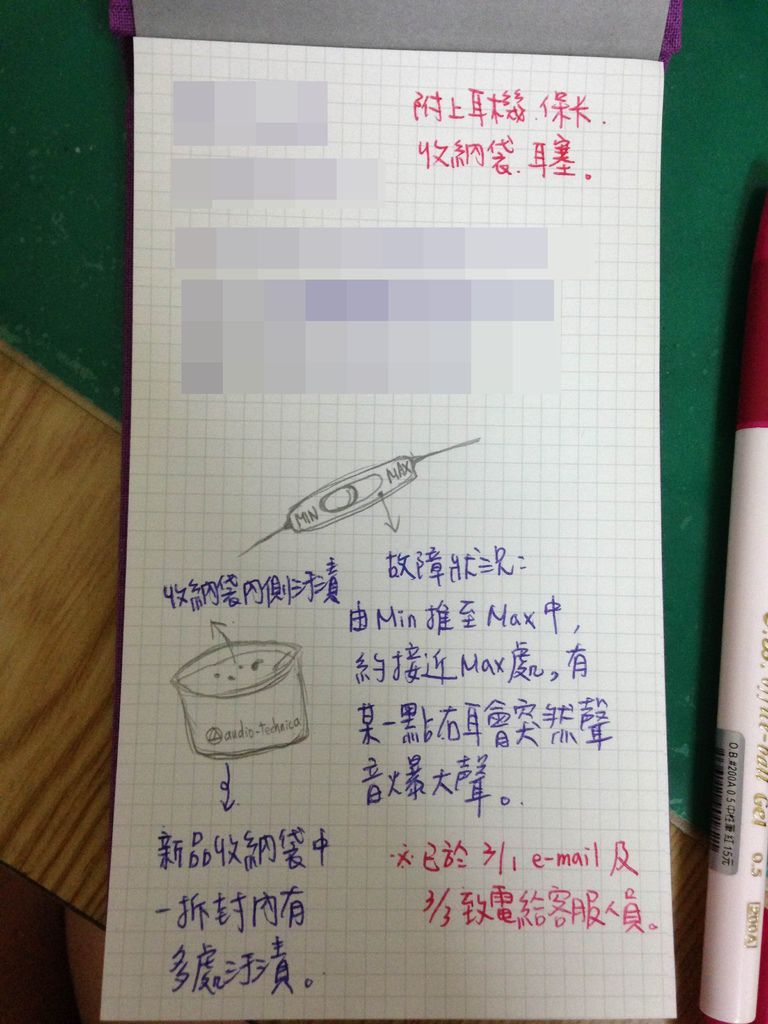 附上耳機.保卡.
收納袋.耳塞。
MIN
MAX
故障狀況:
由Min推至Max中,
約接近Max處,有
某一點右耳會突然聲
音爆大聲。
收納袋內側汙漬
audio-technica
新品收納袋中
一拆封內有
多處汙漬。
※已於3/1 e-mail及
3/3致電給客服人員。
O.B.#200A 0.5 中性筆紅15元
Gel 0.5
[200A]